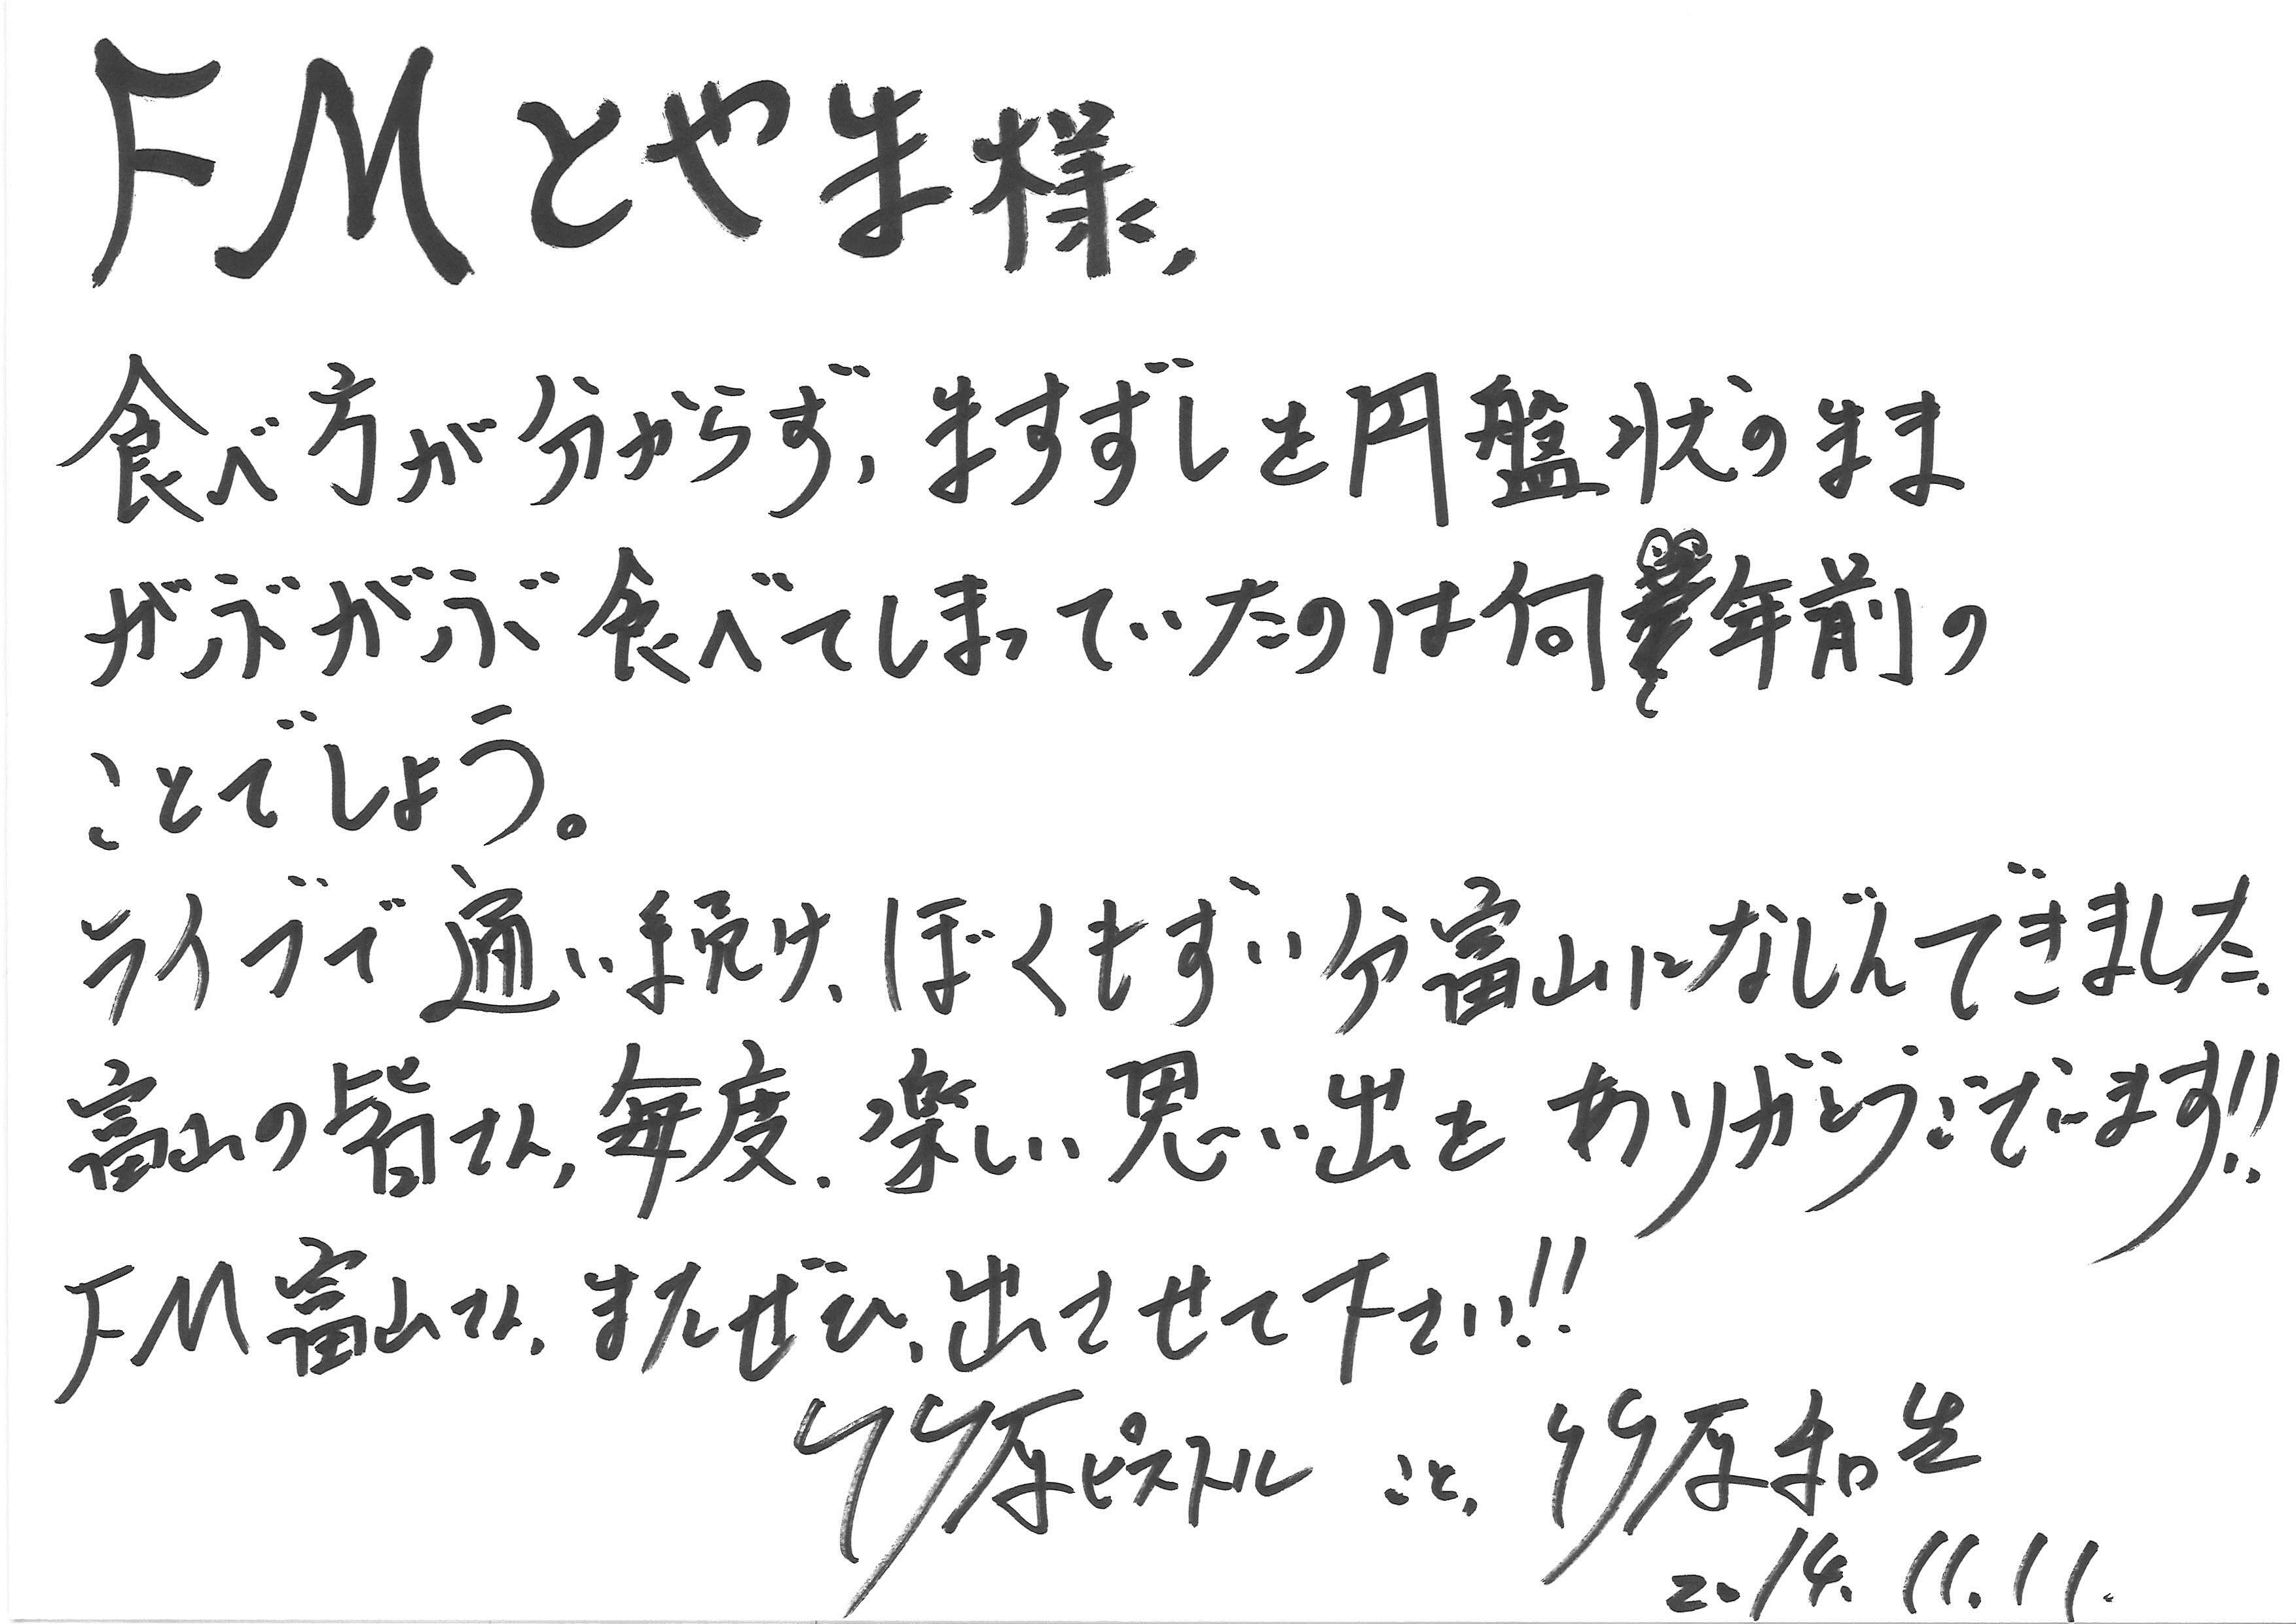 FMとやま様,
食べ方が分からず,ますずしを円盤状のまま
がぶがぶ食べてしまっていたのは何年前の
ことでしょう。
ライブで通い続け、ぼくもずい分富山になじんできました.
富山の皆さん,毎度.楽しい思い出をありがとうございます!!
FM富山さん,またぜひ,出させて下さい!!
竹原ピストル こと, 竹原和生
2014.11.11.